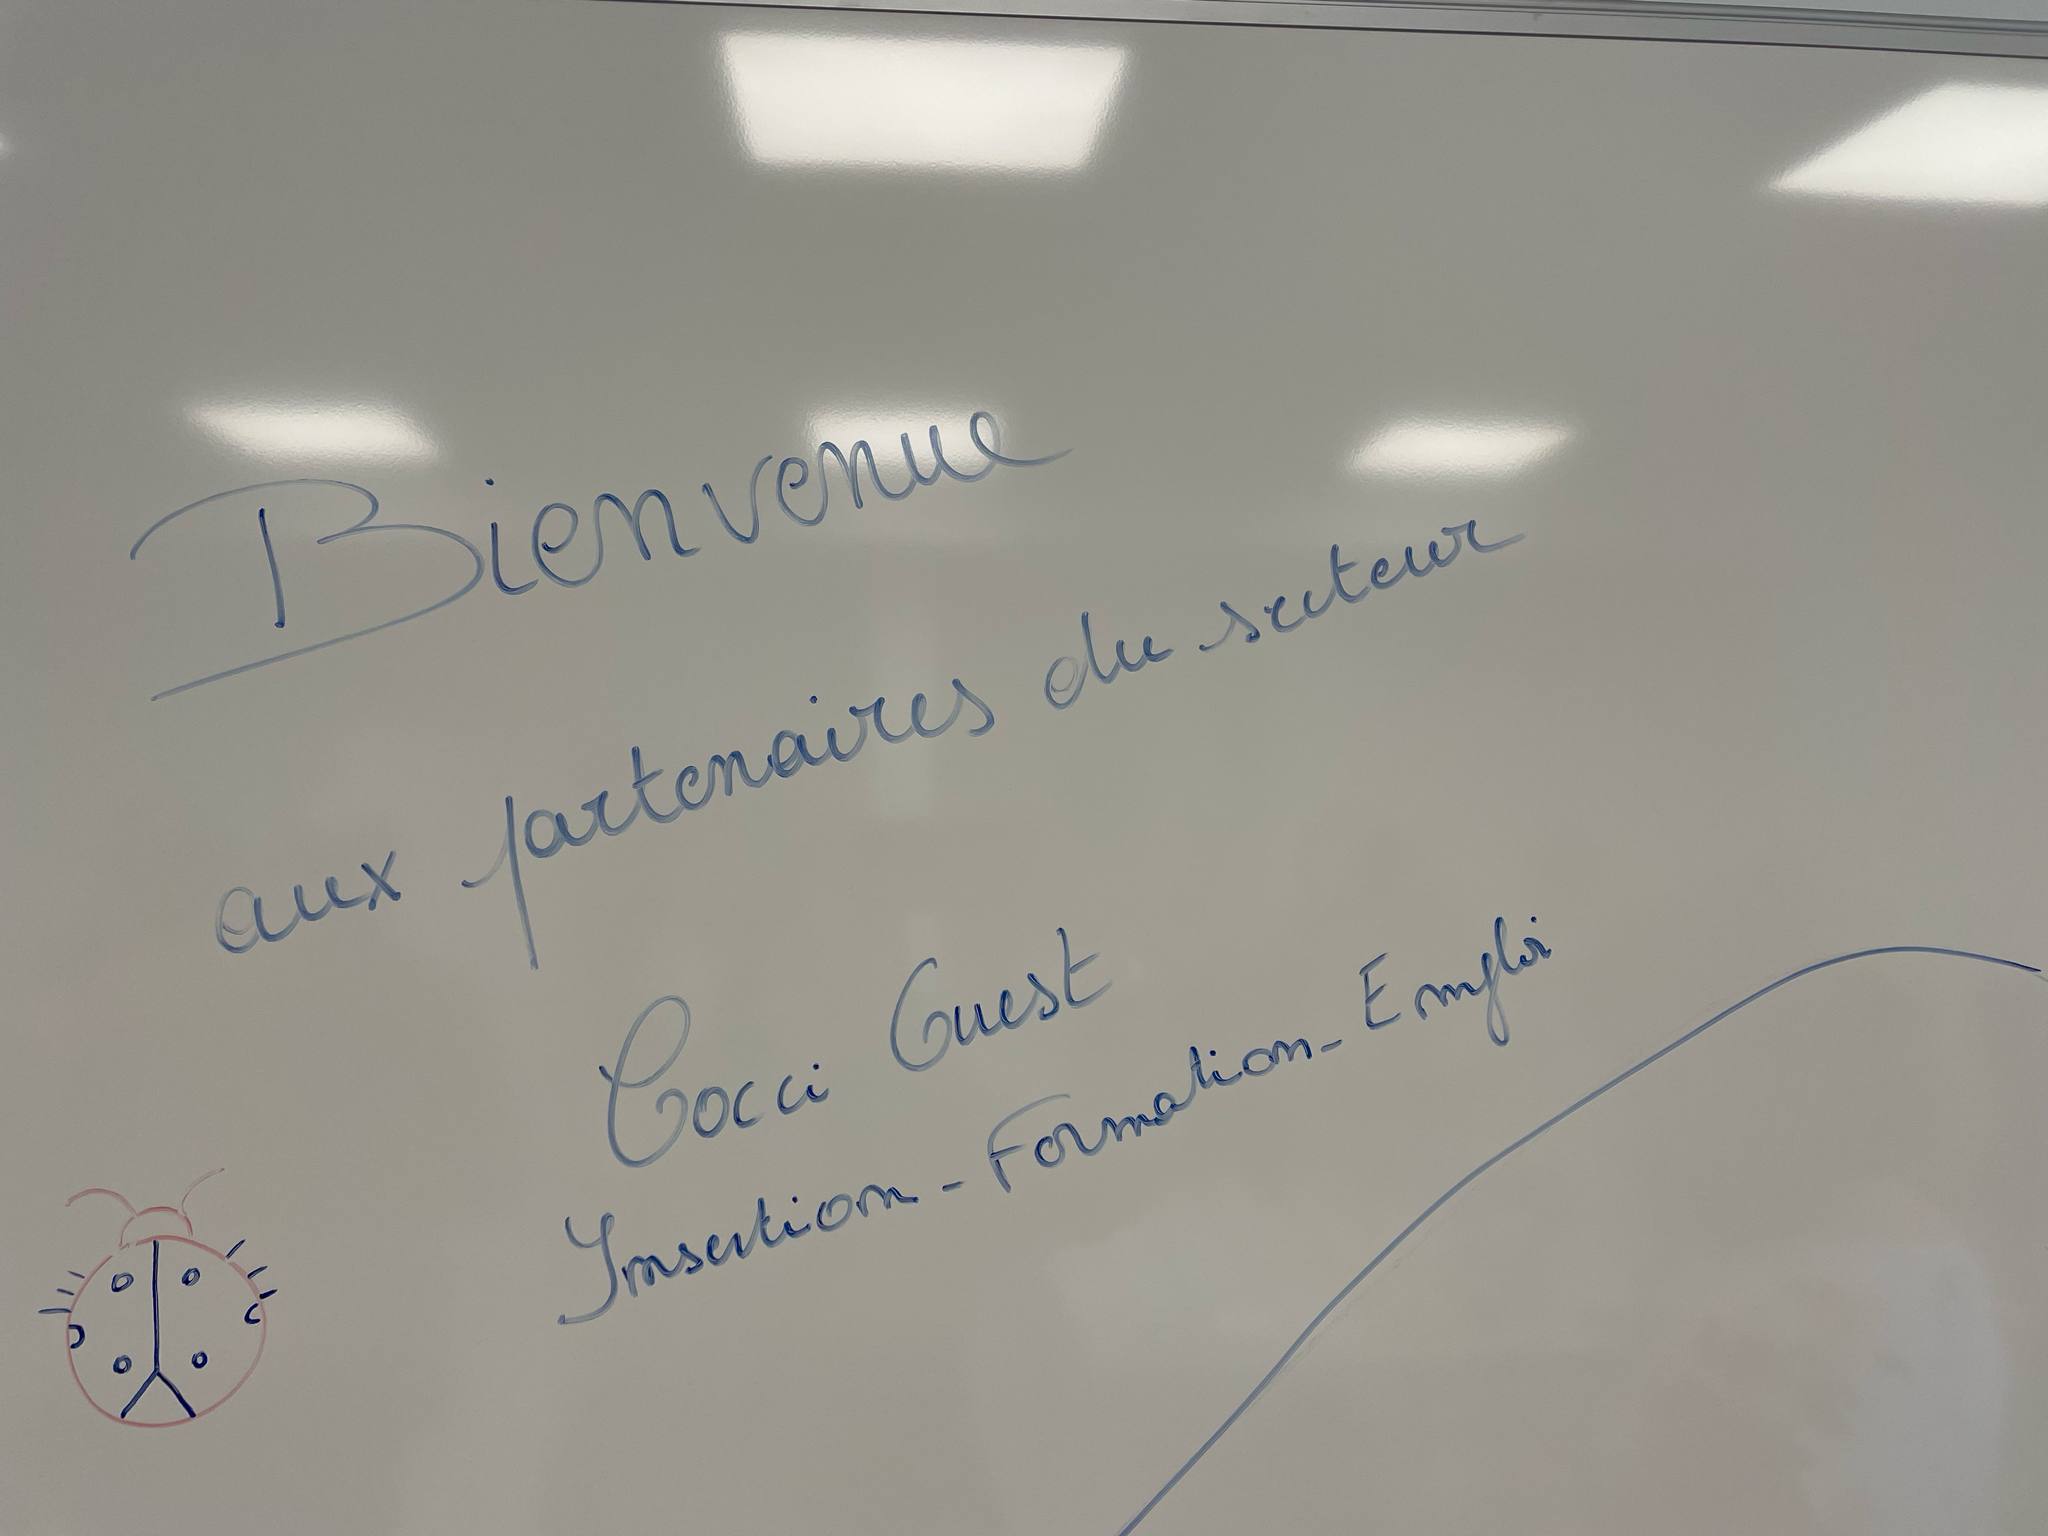 Bienvenue
aux partenaires du secteur
Cocci Guest
Insertion - Formation - Emploi